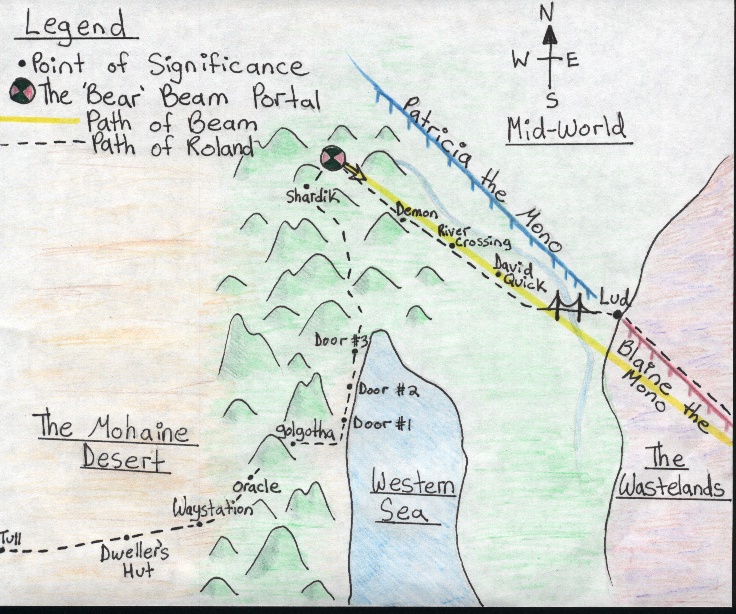 Legend
Point of Significance
The 'Bear' Beam Portal
Path of Beam
Path of Roland
N
W E
S
Mid-World
Patricia the Mono
Shardik
Demon
River
Crossing
David
Quick
Lud
Blaine the
Mono
Door #3
Door #2
Door #1
golgotha
The Mohaine
Desert
Western
Sea
The
Wastelands
Oracle
Waystation
Dweller's
Hut
Tull